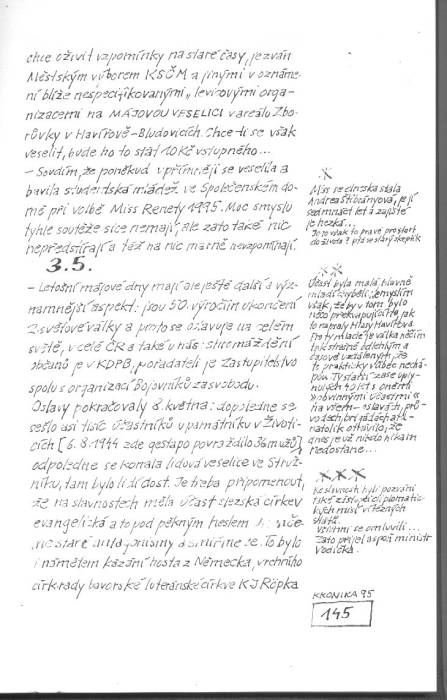 chce oživit vzpomínky na staré časy, je zván
Městským výborem KSČM a jinými v oznáme-
ní blíže nespecifikovanými „levicovými orga-
nizacemi na MÁJOVOU VESELICI v areálu Zbo-
růvky v Havířově-Bludovicích. Chce-li se však
veselit, bude ho to stát 10 Kč vstupného...
- Soudím, že poněkud upřímněji se veselila a
bavila studentská mládež ve Společenském do-
mě při volbě Miss Renety 1995. Moc smyslu
tyhle soutěže sice nemají, ale zato také nic
nepředstírají a též na nic marně nevzpomínají.
3.5.
- Letošní májové dny mají ale ještě další a výz-
namnější aspekt: jsou 50. výročím ukončení
2. světové války a proto se oslavuje na celém
světě, v celé ČR a také u nás: shromáždění
občanů je v KDPB, pořadateli je Zastupitelstvo
spolu s organizací Bojovníků za svobodu.
Oslavy pokračovaly 8. května: dopoledne se
sešlo asi tisíc účastníků u památníku v Životi-
cích [6.8.1944 zde gestapo povraždilo 36 mužů],
odpoledne se konala lidová veselice ve Struž-
níku, tam bylo lidí dost. Je třeba připomenout,
že na slavnostech měla účast slezská církev
evangelická a to pod pěkným heslem
staré a smiřme se. To bylo
i námětem kázání hosta z Německa, vrchního
cirk. rady bavorské luteránské církve K J Röpka
X
Miss sedmnska stala
Andrea Štibrányová, je jí
sedmnáct let a zajisté
je hezká...
Je to však to pravé pro start
do života? ptá se starý skeptik
XX
Účast byla malá, hlavně
mladí chyběli. Nemyslím
však, že by v tom bylo
něco překvapujícího, jak
to napsaly Hlasy Havířova
Pro ty mladé je válka něčím
tak strašně odlehlým a
časově vzdáleným, že
to prakticky vůbec nechá-
pou. Ty staří zase uply-
nulých 40 let s oněmi
"povinnými účastmi"
na všem - oslavách, prů-
vodech, brigádách a
natolik otrávilo, že
dnes je už nikdo nikam
nedostane...
XXX
Na slavnosti byli pozváni
také zástupci diplomatic-
kých misí vítězných
států.
Všichni se omluvili...
Zato přijel aspoň ministr
Vodička.
KRONIKA 95
145